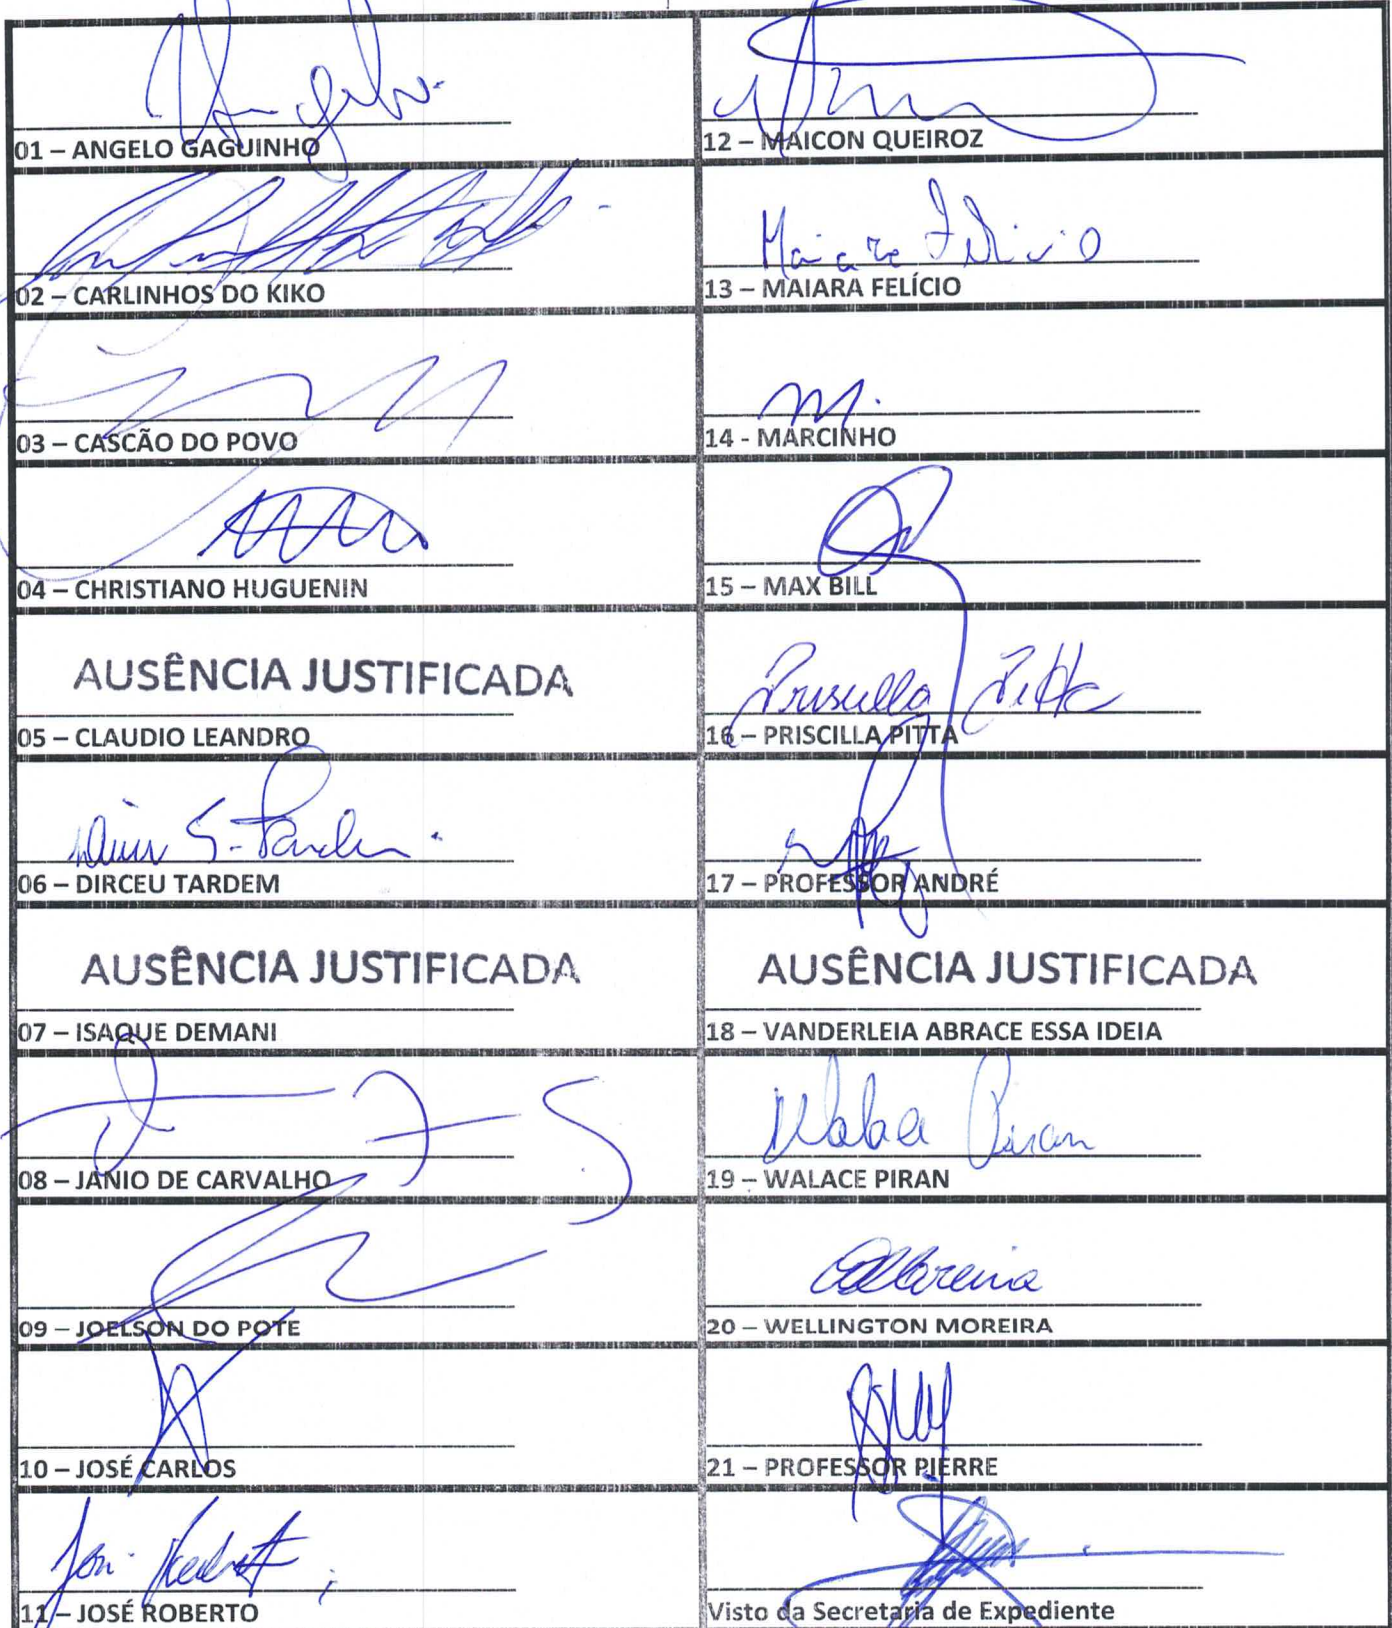 Angelo
01 – ANGELO GAGUINHO
02 – CARLINHOS DO KIKO
03 – CASCÃO DO POVO
04 – CHRISTIANO HUGUENIN
AUSÊNCIA JUSTIFICADA
05 – CLAUDIO LEANDRO
06 – DIRCEU TARDEM
AUSÊNCIA JUSTIFICADA
07 – ISAQUE DEMANI
08 – JANIO DE CARVALHO
09 – JOELSON DO POTE
10 – JOSÉ CARLOS
11 – JOSÉ ROBERTO
12 – MAICON QUEIROZ
Maiara Felicio
13 – MAIARA FELÍCIO
M.
14 - MARCINHO
15 – MAX BILL
Priscilla Pitta
16 – PRISCILLA PITTA
17 – PROFESSOR ANDRÉ
AUSÊNCIA JUSTIFICADA
18 – VANDERLEIA ABRACE ESSA IDEIA
Walace Piran
19 – WALACE PIRAN
20 – WELLINGTON MOREIRA
21 – PROFESSOR PIERRE
Visto da Secretaria de Expediente